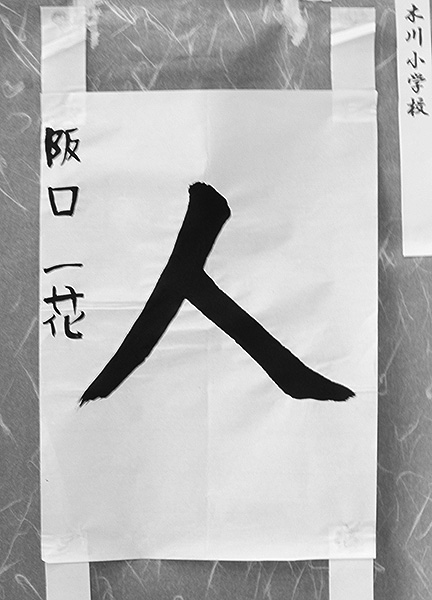 木川小学校
人
阪口 一花